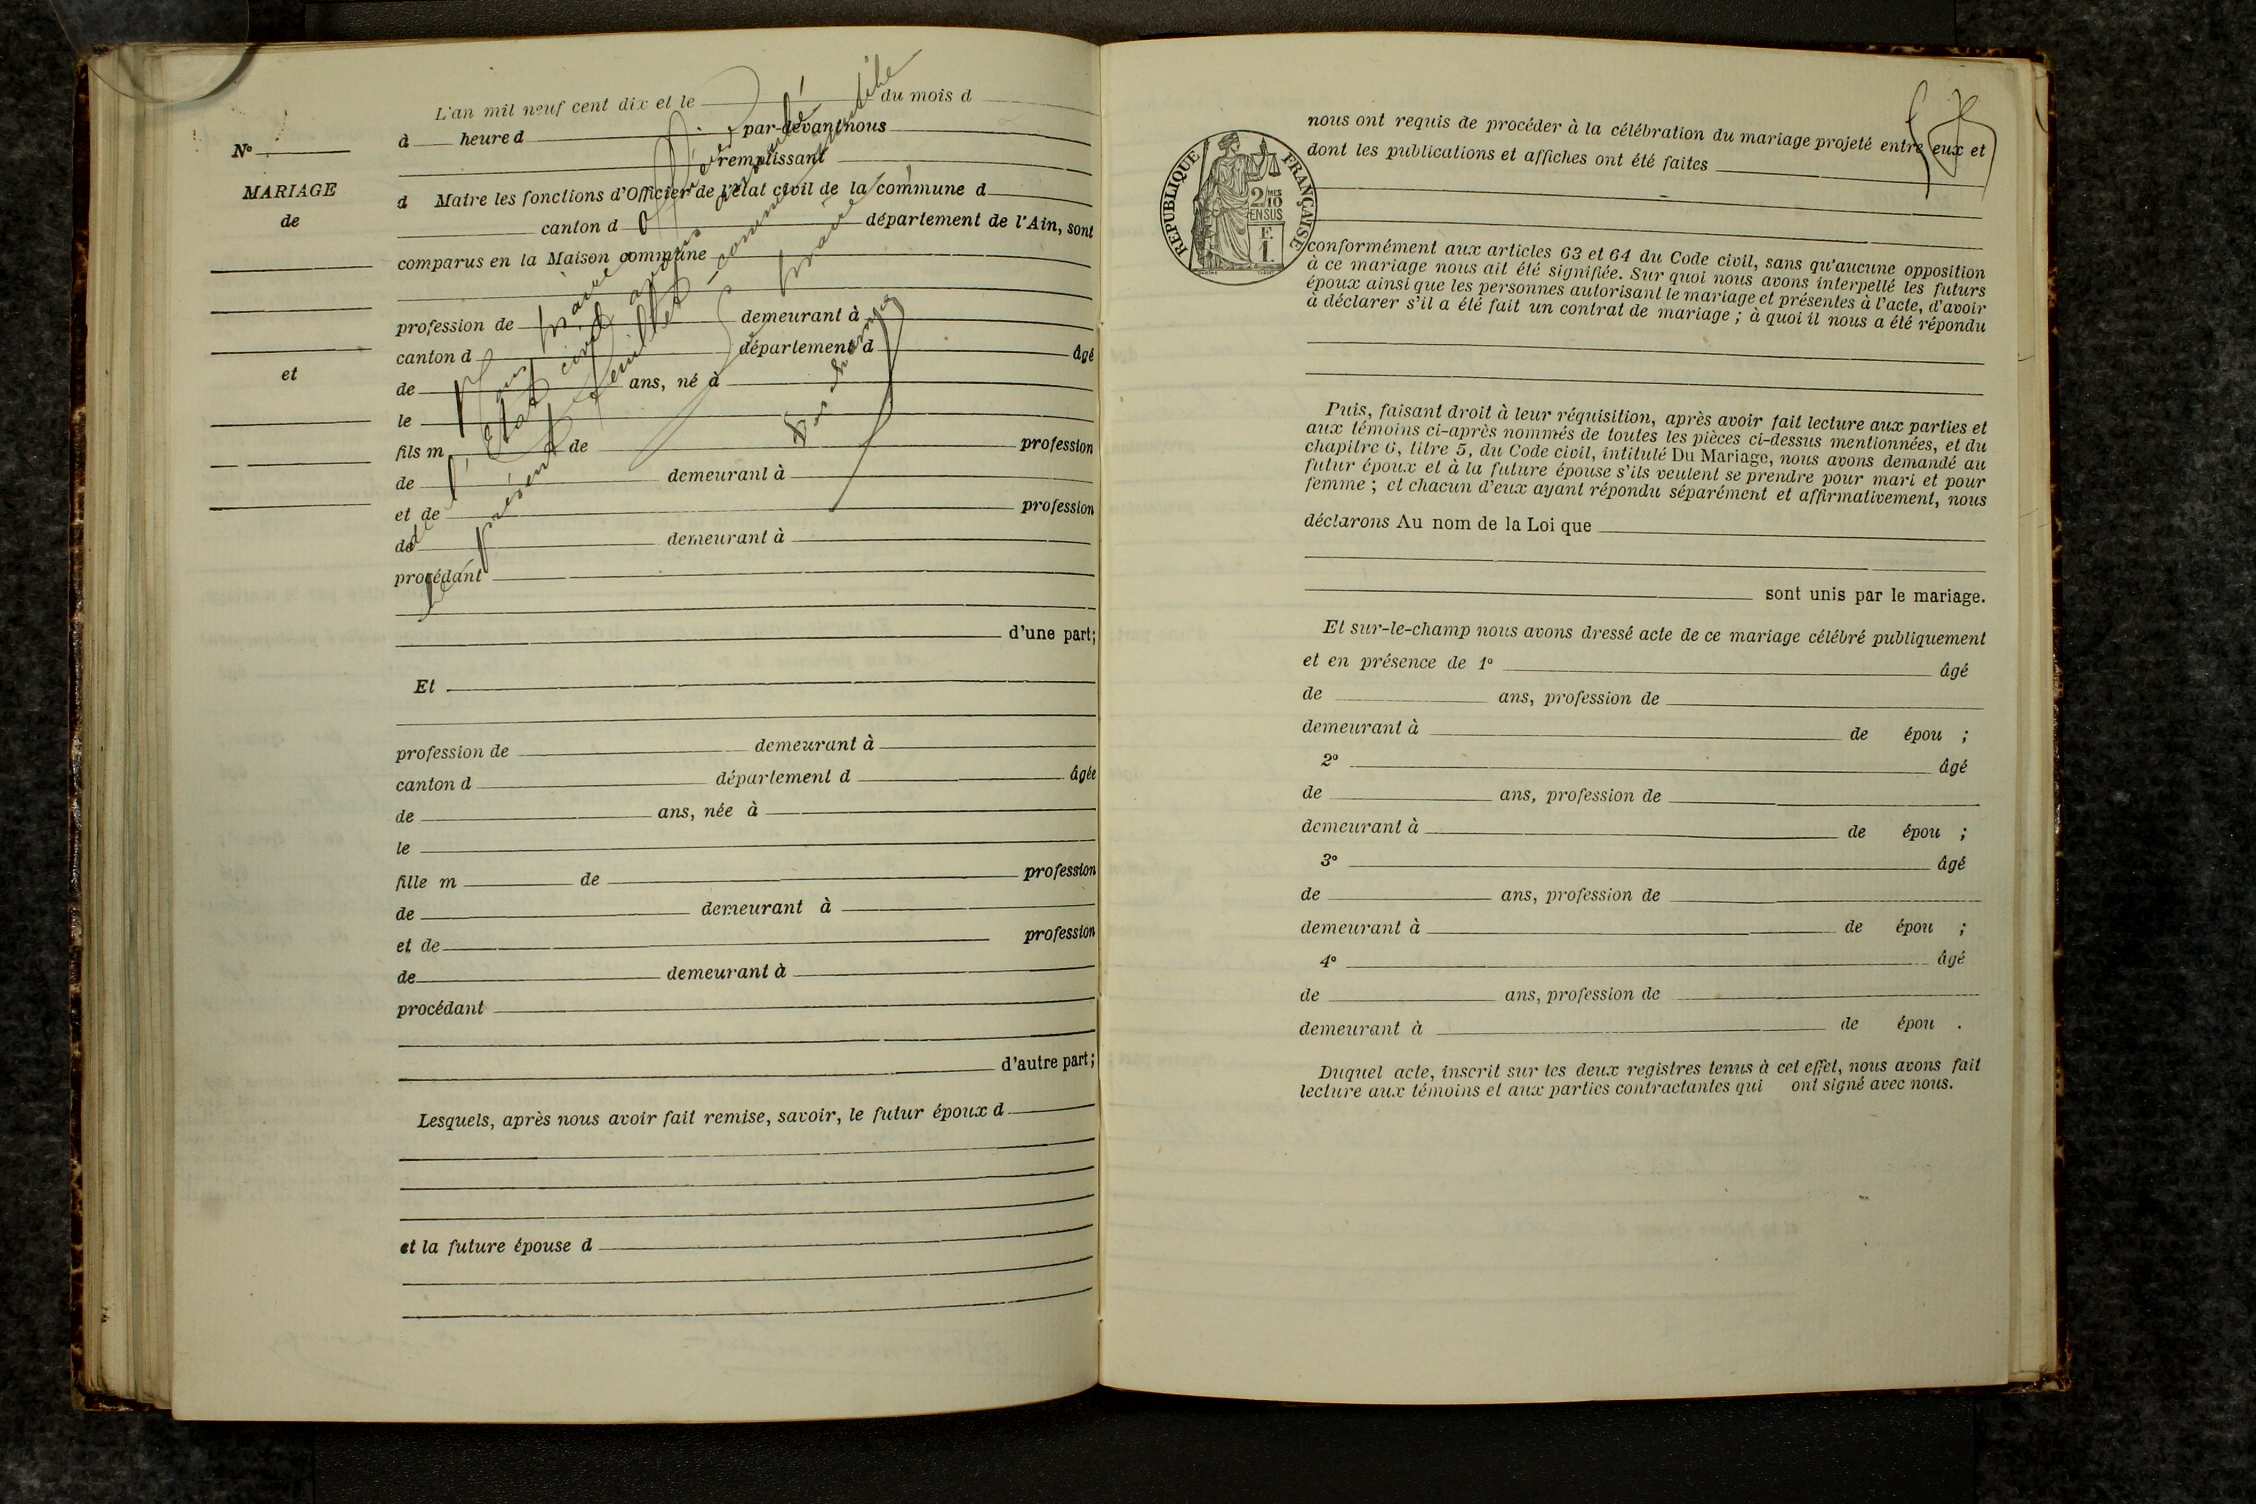 L'an mil neuf cent dix et le du mois d
à heure d par-devant nous
remplissant
d Maire les fonctions d'Officier de l'état civil de la commune d
canton d département de l'Ain, sont
comparus en la Maison commune
profession de demeurant à
canton d département d âgé
de ans, né à
le
fils m de profession
de demeurant à
et de profession
de demeurant à
procédant
d'une part;
Et
profession de demeurant à
canton d département d âgée
de ans, née à
le
fille m de profession
de demeurant à
et de profession
de demeurant à
procédant
d'autre part;
Lesquels, après nous avoir fait remise, savoir, le futur époux d
et la future épouse d
No
MARIAGE
de
et
Nous maire officier
de l'état civil avons
le présent feuillet
Le maire
nous ont requis de procéder à la célébration du mariage projeté entre eux et
dont les publications et affiches ont été faites
RÉPUBLIQUE FRANÇAISE
2 MES
10
EN SUS
F.
1.
conformément aux articles 63 et 64 du Code civil, sans qu'aucune opposition
à ce mariage nous ait été signifiée. Sur quoi nous avons interpellé les futurs
époux ainsi que les personnes autorisant le mariage et présentes à l'acte, d'avoir
à déclarer s'il a été fait un contrat de mariage; à quoi il nous a été répondu
Puis, faisant droit à leur réquisition, après avoir fait lecture aux parties et
aux témoins ci-après nommés de toutes les pièces ci-dessus mentionnées, et du
chapitre 6, titre 5, du Code civil, intitulé Du Mariage, nous avons demandé au
futur époux et à la future épouse s'ils veulent se prendre pour mari et pour
femme; et chacun d'eux ayant répondu séparément et affirmativement, nous
déclarons Au nom de la Loi que
sont unis par le mariage.
Et sur-le-champ nous avons dressé acte de ce mariage célébré publiquement
et en présence de 1o âgé
de ans, profession de
demeurant à de épou ;
2o âgé
de ans, profession de
demeurant à de épou ;
3o âgé
de ans, profession de
demeurant à de épou ;
4o âgé
de ans, profession de
demeurant à de épou .
Duquel acte, inscrit sur les deux registres tenus à cet effet, nous avons fait
lecture aux témoins et aux parties contractantes qui ont signé avec nous.